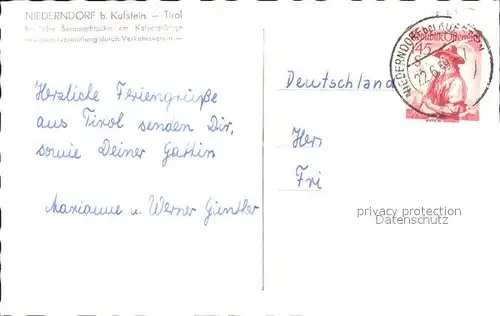 NIEDERNDORF b. Kufstein — Tirol
Sommerfrische am Kaisergebirge
durch Verkehrsverein —
Herzliche Feriengrüße
aus Tirol senden Dir,
sowie Deiner Gattin
Marianne u. Werner Günther
Deutschland
Herr
Fri
NIEDERNDORF BEI KUFSTEIN
22.6.59
REPUBLIK ÖSTERREICH
1.45
S
privacy protection
Datenschutz